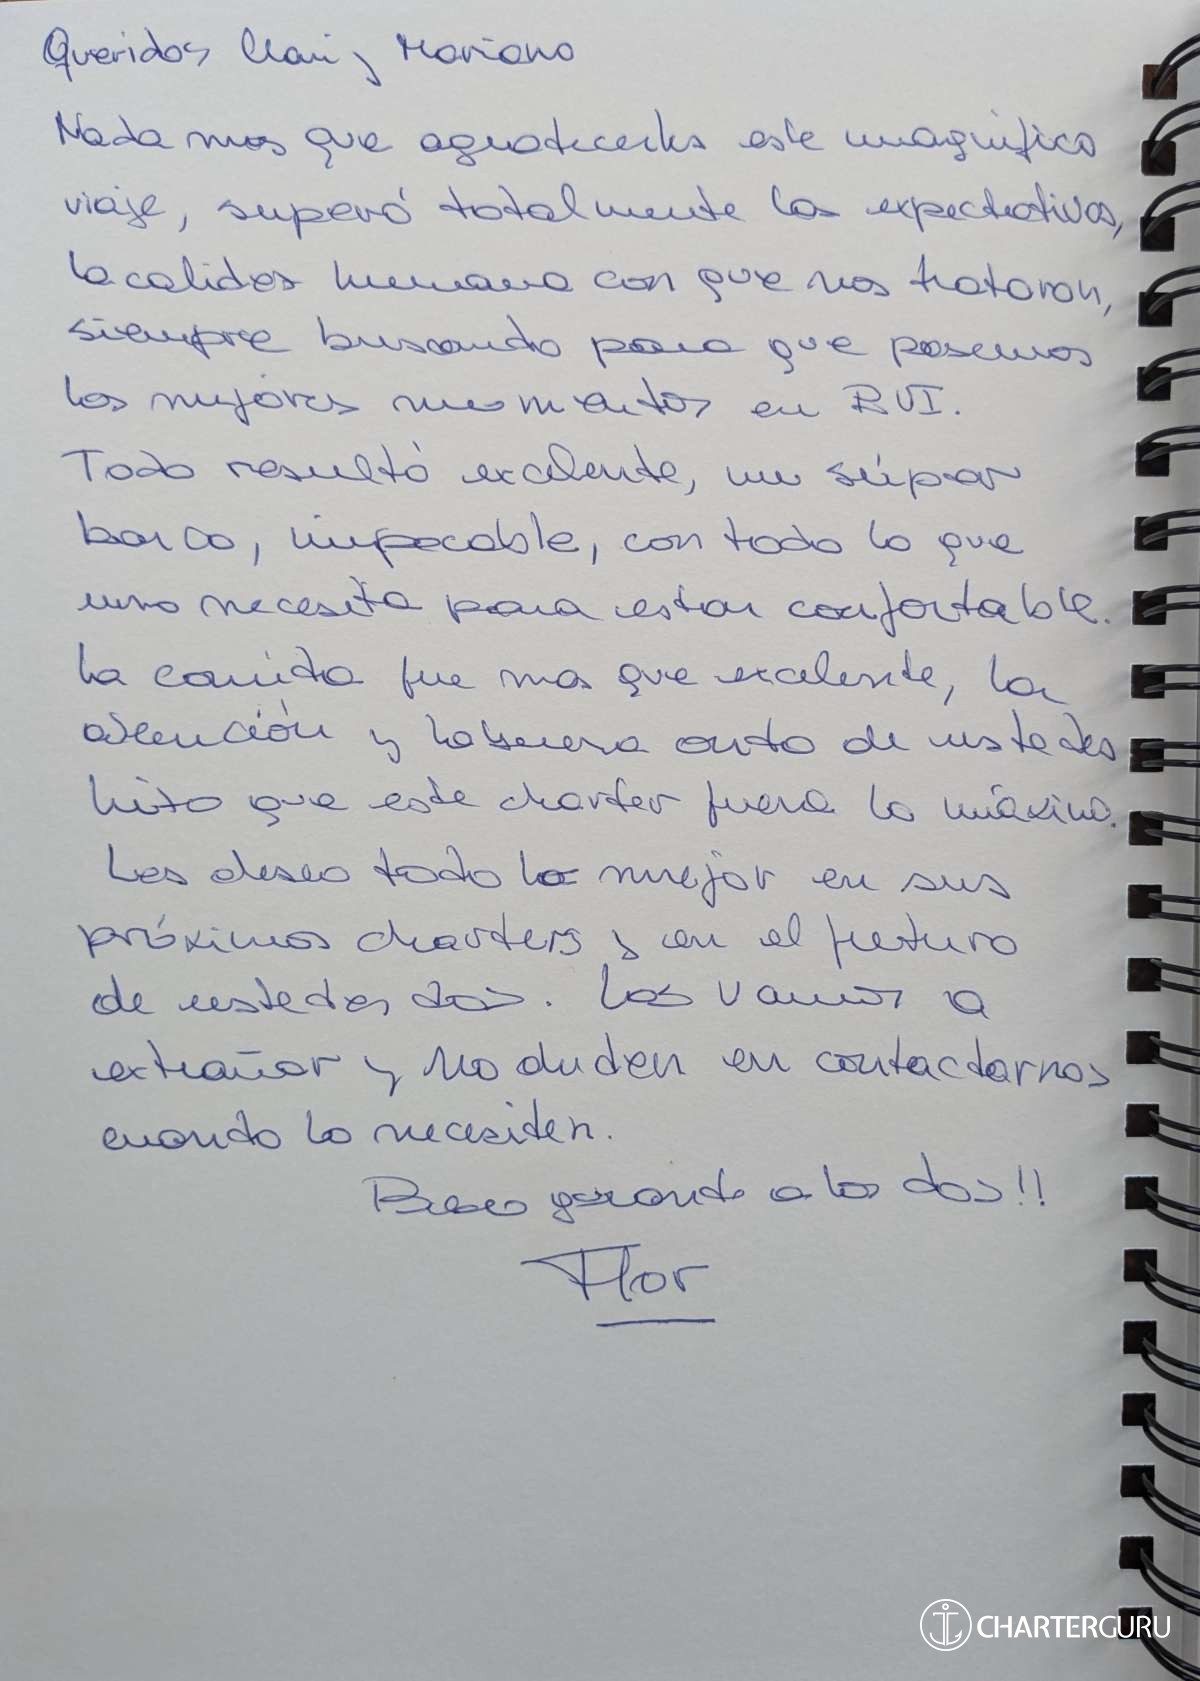 Queridos Mari y Mariano
Nada mas que agradecerles este magnifico
viaje, superó totalmente las expectativas,
la calidez humana con que nos trataron,
siempre buscando para que pasemos
los mejores momentos en BVI.
Todo resultó excelente, un súper
barco, impecable, con todo lo que
uno necesita para estar confortable.
La comida fue mas que excelente, la
atención y la buena onda de ustedes
hizo que este charter fuera lo máximo.
Les deseo todo lo mejor en sus
próximos charters y en el futuro
de ustedes dos. Los vamos a
extrañar y no duden en contactarnos
cuando lo necesiten.
Beso grande a los dos!!
Flor
CHARTERGURU